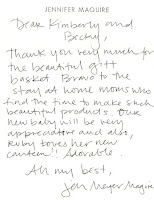 JENNIFER MAGUIRE
Dear Kimberly and
Becky,
Thank you very much for
the beautiful gift
basket. Bravo to the
stay at home moms who
find the time to make such
beautiful products. Our
new baby will be very
appreciative and also,
Ruby loves her new
canteen!! Adorable.
All my best,
Jen Meyer Maguire